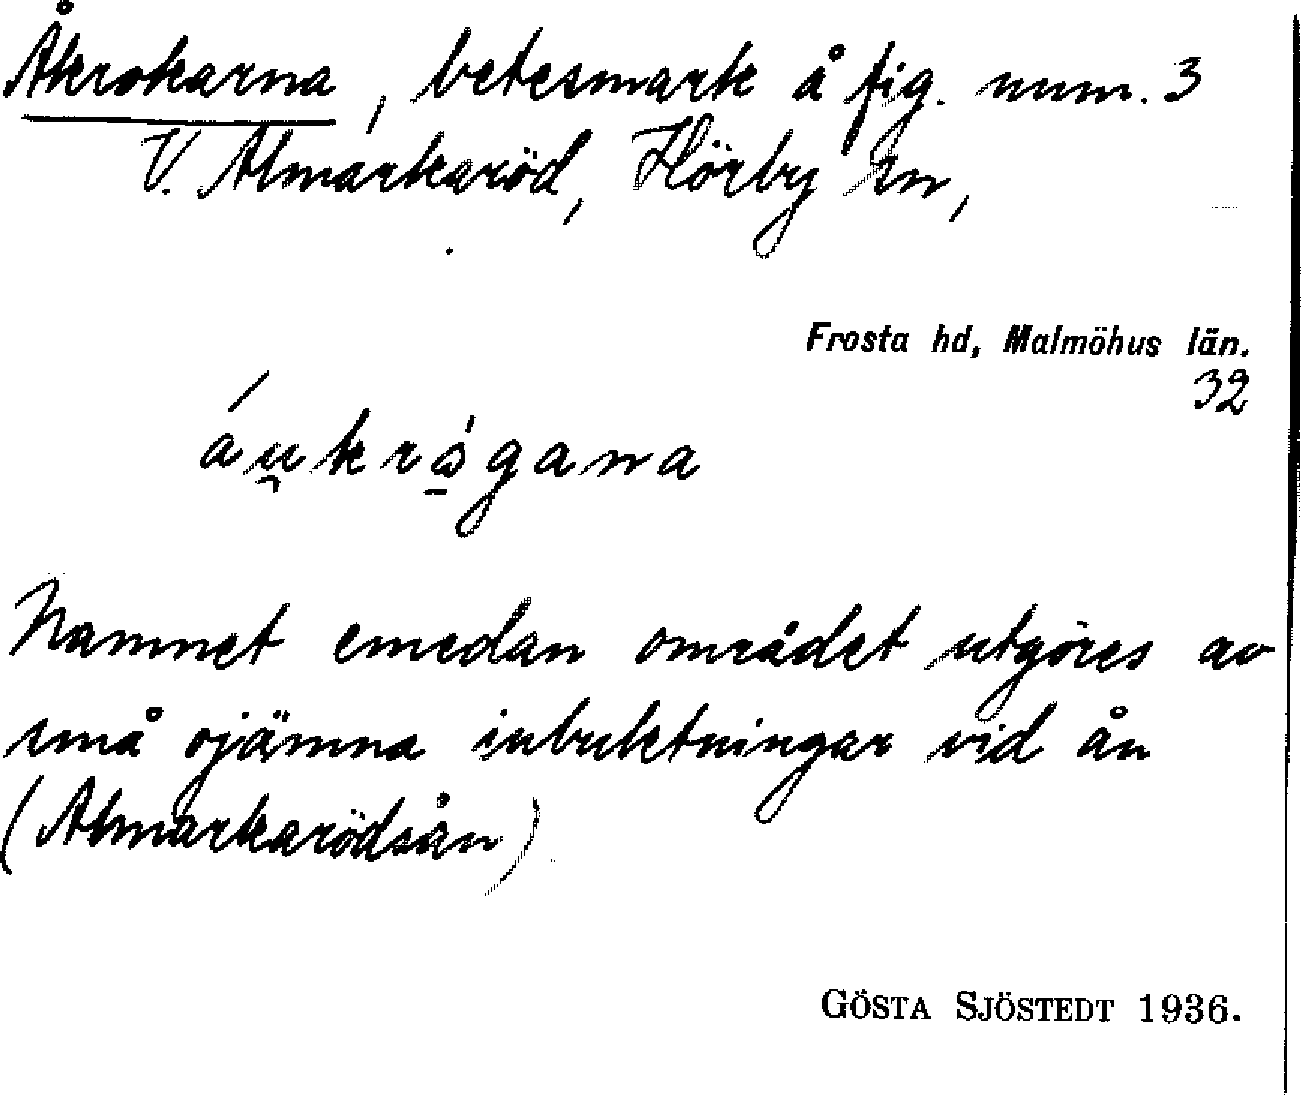 Åkrokarna, betesmark å fig. num. 3
V. Almarkaröd, Hörby sn,
Frosta hd, Malmöhus län.
32
Namnet emedan området utgöres av
små ojämna inbuktningar vid ån
(Almarkarödsån)
GÖSTA SJÖSTEDT 1936.